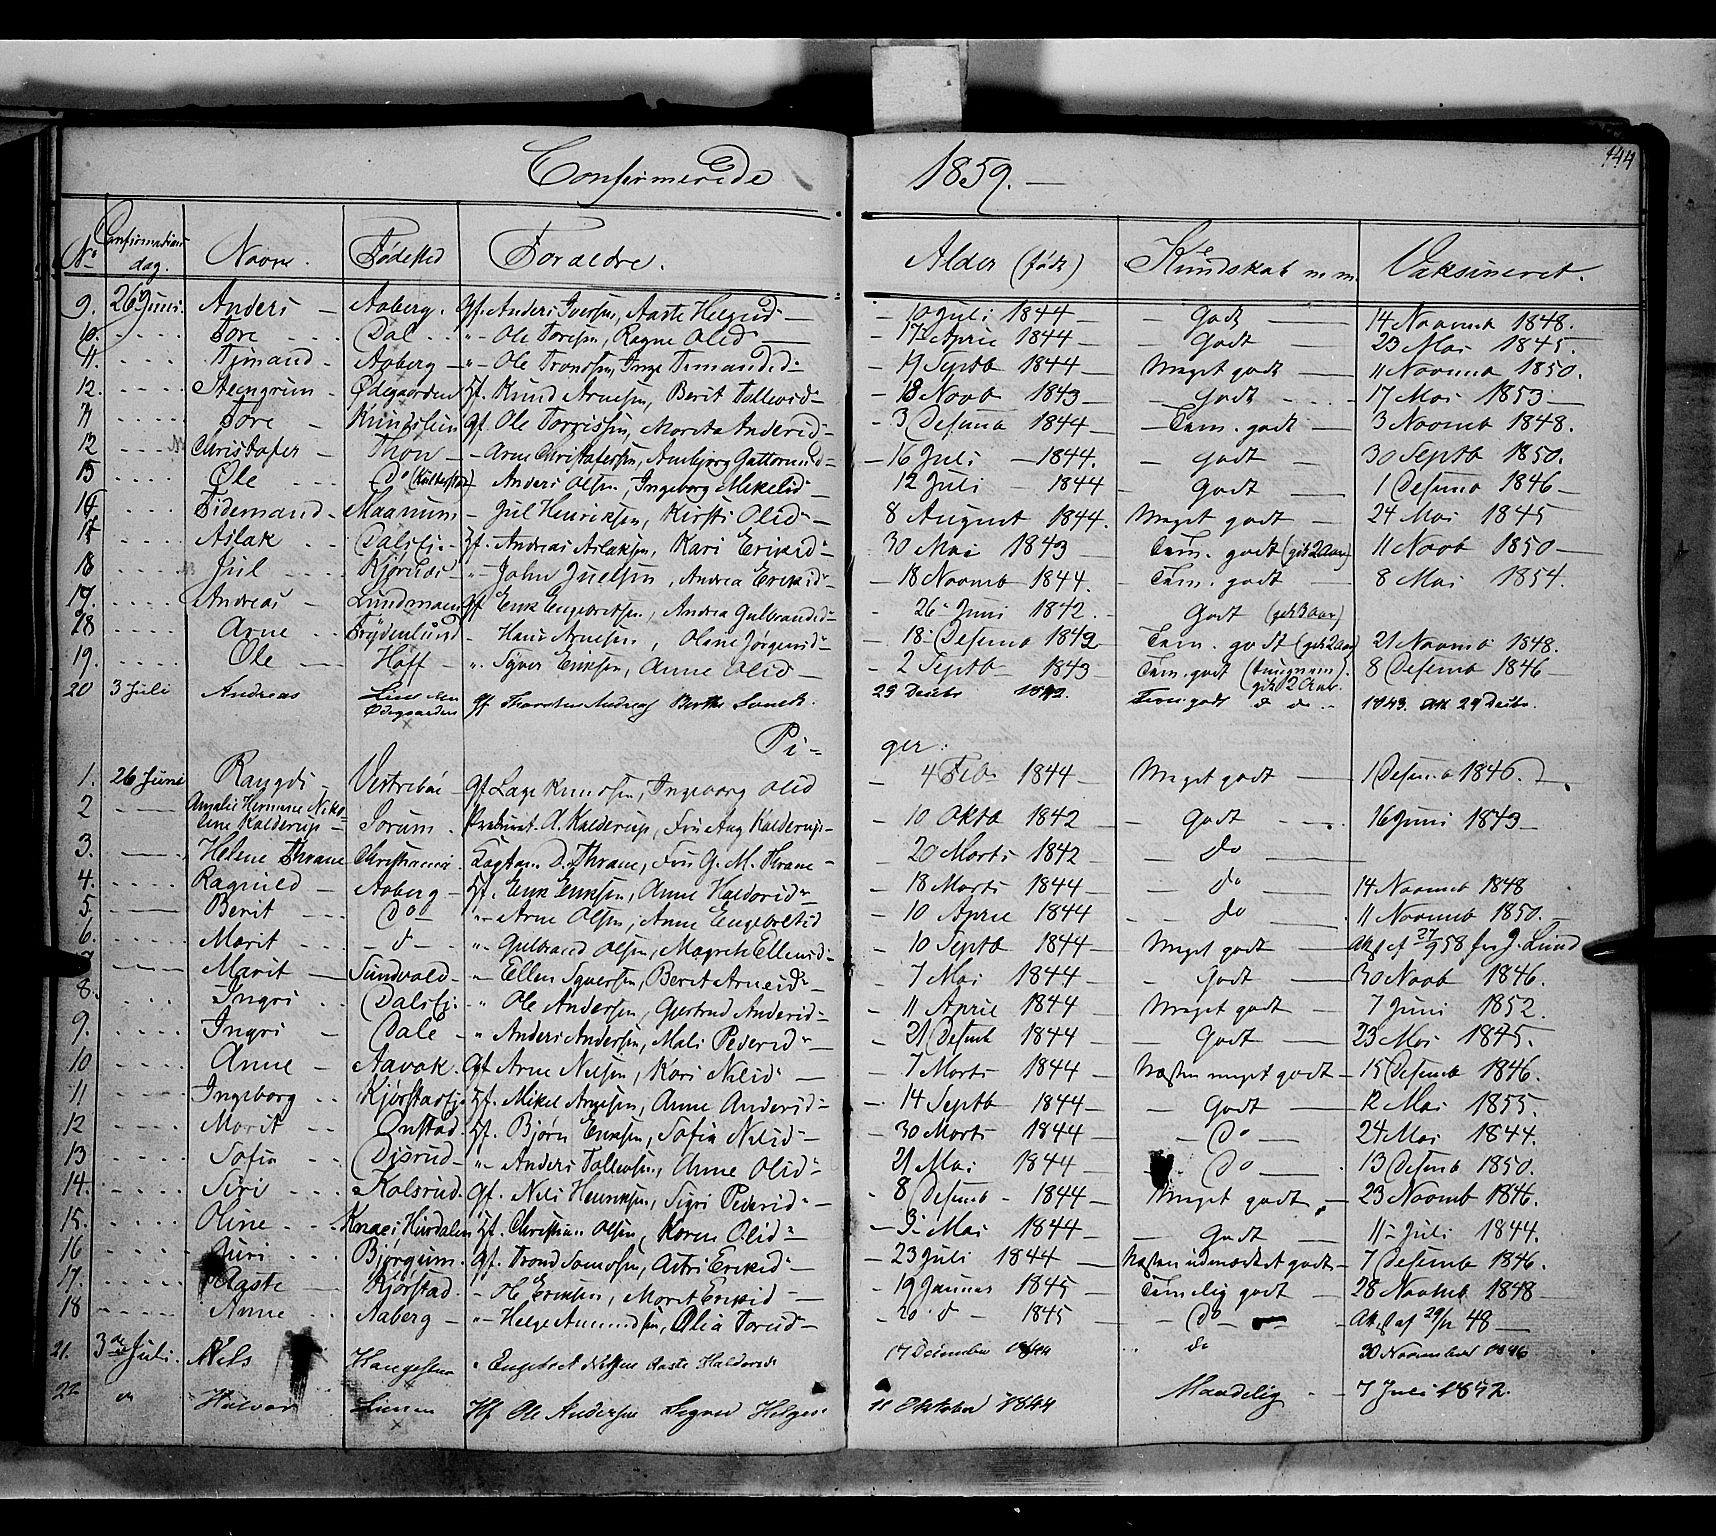 Confirmerede 1859. —
144
No Confirmations dag. Navne. Fødested Foraeldre. Alder (født) Kundskab m.m. Vaksineret.
9. 26 Juni. Anders — Aaberg. Gf. Anders Iversen, Aaste Helgesd — 10 Juli 1844 — Godt — 14 Novemb 1848.
10. Tore Dal " Ole Toresen, Ragne Olsd — 17 April 1844 — Godt — 23 Mai 1845.
11. Timand Aaberg — " Ole Trondsen, Inge Timandsd — 19 Septb 1844 Meget godt — 11 Novemb 1850.
12. Steingrim Ødegaarden Hf. Knud Arnesen, Berit Tollevsd — 18 Novb 1843 — Godt 17 Mai 1853 —
Tore — Gf. Ole Torrissen, Marita Andersd — 3 Desemb 1844 — Tem. godt — 3 Novemb 1848.
Christofer — Thon — Arne Christofersen, Ambjørg Guttormsd — 16 Juli — 1844. — godt — 30 Septb 1850.
15 Ole Do — Anders Olsen, Ingeborg Mikelsd — 12 Juli 1844 — Godt — 1 Desemb 1846 —
Tidemand — Maanum — Jul Henriksen, Kirsti Olsd — 8 August 1844. Meget godt — 24 Mai 1845
Aslak Dalsej. Hf. Andreas Aslaksen, Kari Eriksd — 30 Mai 1843 Tem. godt (gik 2 Aar) 11 Novb 1850 —
18 Jul " John Juelsen, Andrea Eriksd — 18 Novemb 1844. Tem. godt — 8 Mai 1854.
Andreas — Lundmoen Gf Erik Engebretsen, Andrea Gulbrandsd — 26 Juni 1842. Godt (gik 3 Aar)
Arne Frydenlund — Hans Arnesen, Oline Jørgensd — 18 Desemb 1842 Tem. godt (gik 2 Aar) 21 Novemb 1848.
19. Ole — Hoff — " Syver Eriksen, Anne Olsd — 2 Septb 1843 Tem. godt (tungnem) gik 2 Aar. 8 Desemb 1846 —
20 3 Juli Andreas Lien den Ødegaarden gf Thorsten Andreas Berthe 29 Decbr 1842. Tem. godt do do 1843. Att 29 Decbr.
Pi- ger.
1. 26 Juni Ragndi Vestrebøe Gf Lage Knudsen, Ingeborg Olsd — 4 Feb 1844 — Meget godt — 1 Desemb 1846.
2 Amalie Hermine Niko-
line Kalderup — Sorum. Prokurat. A. Kalderup, Fru Aug Kalderup — 10 Oktb 1842 — Godt — 16 Juni 1843 —
3. Helene Thrane Christiania Kaptein D. Thrane, Fru G. M. Thrane — 20 Marts 1842 — do —
4. Ragnild — Aaberg — Hf. Erik Eriksen, Anne Haldorsd — 18 Marts 1844 — do — 14 Novemb 1848
5. Berit Do " Arne Olsen, Anne Engebretsd — 10 April 1844 — do — 11 Novemb 1850. —
6. Marit — d — " Gulbrand Olsen, Magreth Ellensd — 10 Septb 1844 — Meget godt — Att af 27/9 58 fra J. Lund
Marit — Sundvold — Ellen Syversen, Berit Arnesd — 7 Mai 1844 — Godt — 30 Novb 1846.
8. Ingri Dalsej. " Ole Andersen, Gjertrud Andersd — 11 April 1844 — Meget godt — 7 Juni 1852.
9. Ingri — Dale — " Anders Andersen, Mali Pedersd — 21 Desemb 1844 — Godt — 23 Mai 1845.
10 Anne — Aavok. Gf Arne Nilsen, Kari Nilsd — 7 Marts 1844 Næsten meget godt — 15 Desemb 1846.
11 Ingeborg Kjørstadej. Hf. Mikel Arnesen, Anne Andersd — 14 Septb 1844 — Godt — 12 Mai 1855.
12 Marit Onstad. Hf. Bjørn Eriksen, Sofia Nilsd — 30 Marts 1844 — Do — 24 Mai 1844.
13 Sofia " Anders Tollevsen, Anne Olsd — 21 Mai 1844 — Do — 13 Desemb 1850.
14. Siri Kolsrud. Gf. Nils Henriksen, Sigri Pedersd — 8 Desemb 1844 — Meget godt — 23 Novemb 1846.
15. Oline Hf. Christian Olsen, Karen Olsd — 3 Mai 1844 — Godt — 11 Juli 1844.
16 Guri Bjørgum. Gf. Trond Tomosen, Astri Eriksd — 23 Juli 1844 — Næsten udmærket godt — 7 Desemb 1846.
17. Aaste — Kjørstad. — H Eriksen, Marit Eriksd — 19 Januar 1845 — Temelig godt — 28 Novemb 1848 —
18 Anne Aaberg — " Helge Amundsen, Olia Torsd — 20 d — 1845 — Do — Att af 29/12 48 —
21. 3die Juli. Nils Haugestuen " Engebret Nilsen Aaste Haldorsd 17 December 1844 " do 30 November 1846
22 do Halvor Lunen Hf Ole Andersen Sigrid Helges 11 Oktober 1844 Maadelig — 7 Juli 1852.